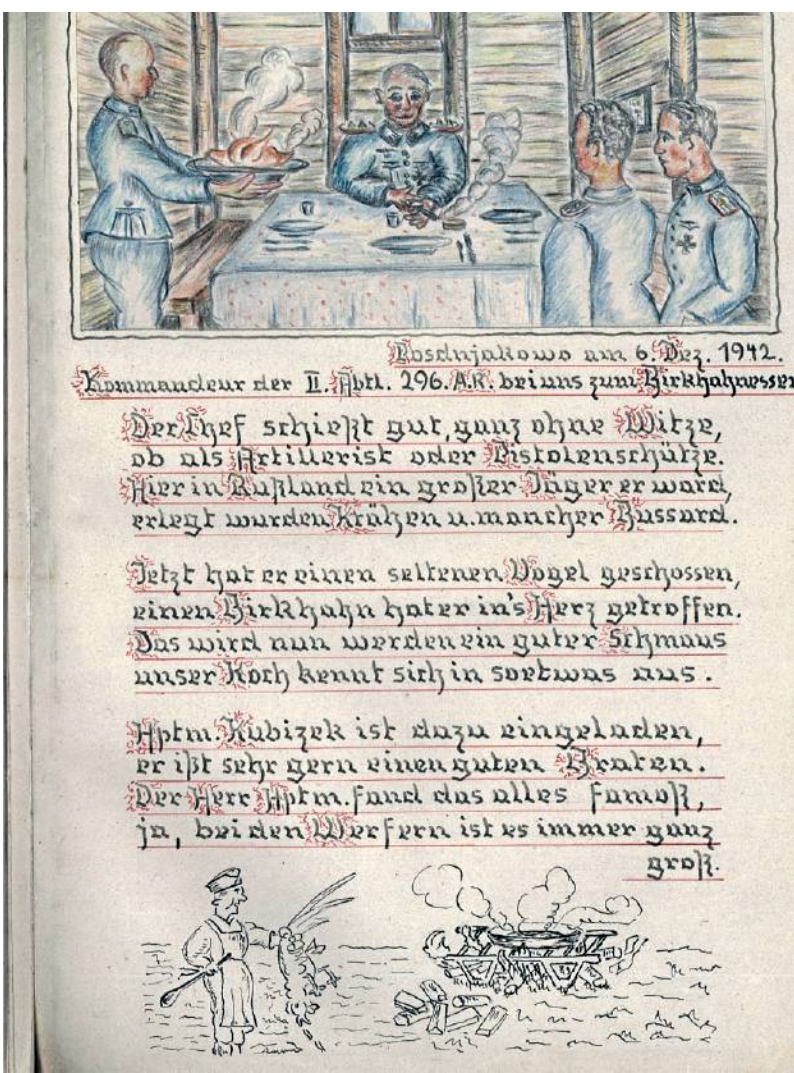 Posdnjakowo am 6. Dez. 1942.
Kommandeur der II. Abtl. 296. A.R. bei uns zum Birkhahnessen
Der Chef schießt gut, ganz ohne Witze,
ob als Artillerist oder Pistolenschütze.
Hier in Rußland ein großer Jäger er ward,
erlegt wurden Krähen u. mancher Bussard.
Jetzt hat er einen seltenen Vogel geschossen,
einen Birkhahn hat er in's Herz getroffen.
Das wird nun werden ein guter Schmaus
unser Koch kennt sich in soetwas aus.
Hptm. Kubizek ist dazu eingeladen,
er ißt sehr gern einen guten Braten.
Der Herr Hptm. fand das alles famoß,
ja, bei den Werfern ist es immer ganz
groß.